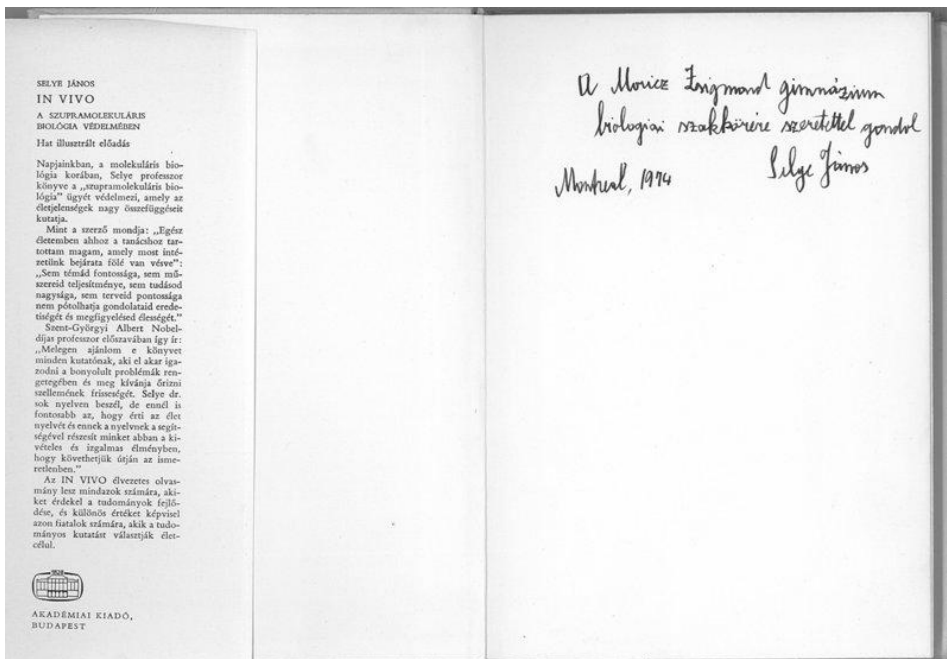 SELYE JÁNOS
IN VIVO
A SZUPRAMOLEKULÁRIS
BIOLÓGIA VÉDELMÉBEN
Hat illusztrált előadás
Napjainkban, a molekuláris bio-
lógia korában, Selye professzor
könyve a „szupramolekuláris bio-
lógia” ügyét védelmezi, amely az
életjelenségek nagy összefüggéseit
kutatja.
Mint a szerző mondja: „Egész
életemben ahhoz a tanácshoz tar-
tottam magam, amely most inté-
zetünk bejárata fölé van vésve”:
„Sem témád fontossága, sem mű-
szereid teljesítménye, sem tudásod
nagysága, sem terveid pontossága
nem pótolhatja gondolataid erede-
tiségét és megfigyelésed élességét.”
Szent-Györgyi Albert Nobel-
díjas professzor előszavában így ír:
„Melegen ajánlom e könyvet
minden kutatónak, aki el akar iga-
zodni a bonyolult problémák ren-
getegében és meg kívánja őrizni
szellemének frisseségét. Selye dr.
sok nyelven beszél, de ennél is
fontosabb az, hogy érti az élet
nyelvét és ennek a nyelvnek a segít-
ségével részesít minket abban a ki-
vételes és izgalmas élményben,
hogy követhetjük útján az isme-
retlenben.”
Az IN VIVO élvezetes olvas-
mány lesz mindazok számára, aki-
ket érdekel a tudományok fejlő-
dése, és különös értéket képvisel
azon fiatalok számára, akik a tudo-
mányos kutatást választják élet-
célul.
1828
AKADÉMIAI KIADÓ,
BUDAPEST
A Moricz Zsigmond gimnázium
biologiai szakkörére szeretettel gondol
Selye János
Montreal, 1974